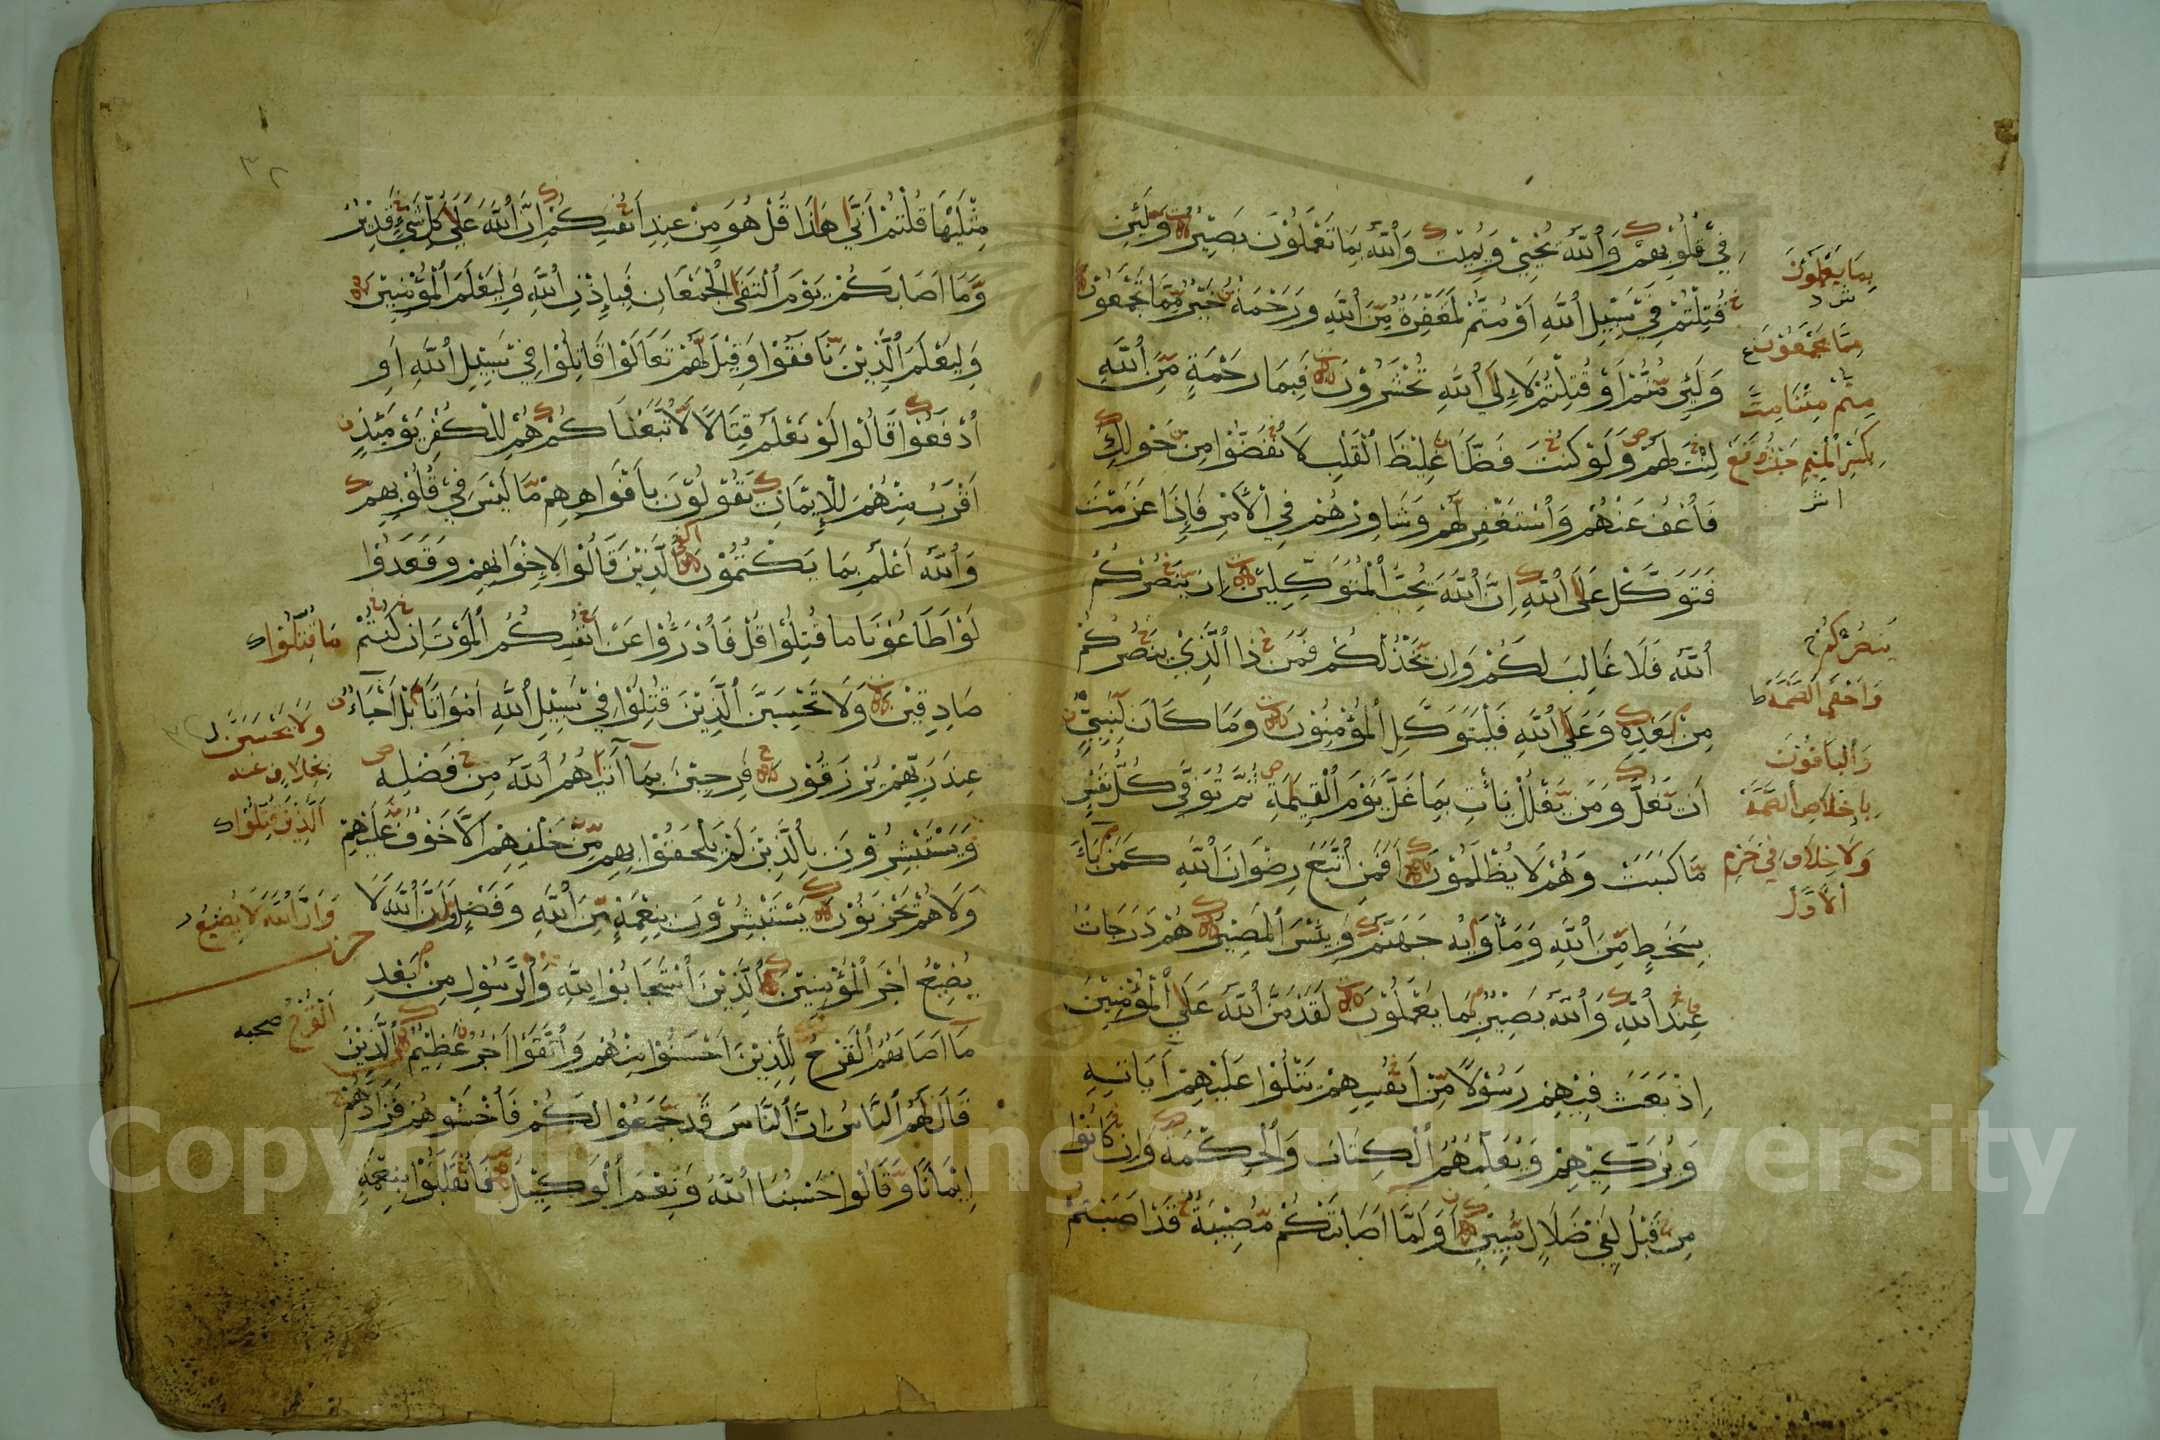 فِي قُلُوبِهِمْ وَاللَّهُ يُحْيِي وَيُمِيتُ وَاللَّهُ بِمَا تَعْمَلُونَ بَصِيرٌ وَلَئِن
قُتِلْتُمْ فِي سَبِيلِ اللَّهِ أَوْ مُتُّمْ لَمَغْفِرَةٌ مِّنَ اللَّهِ وَرَحْمَةٌ خَيْرٌ مِّمَّا تَجْمَعُونَ
وَلَئِن مُّتُّمْ أَوْ قُتِلْتُمْ لَإِلَى اللَّهِ تُحْشَرُونَ فَبِمَا رَحْمَةٍ مِّنَ اللَّهِ
لِنتَ لَهُمْ وَلَوْ كُنتَ فَظًّا غَلِيظَ الْقَلْبِ لَانفَضُّوا مِنْ حَوْلِكَ
فَاعْفُ عَنْهُمْ وَاسْتَغْفِرْ لَهُمْ وَشَاوِرْهُمْ فِي الْأَمْرِ فَإِذَا عَزَمْتَ
فَتَوَكَّلْ عَلَى اللَّهِ إِنَّ اللَّهَ يُحِبُّ الْمُتَوَكِّلِينَ إِن يَنصُرْكُمُ
اللَّهُ فَلَا غَالِبَ لَكُمْ وَإِن يَخْذُلْكُمْ فَمَن ذَا الَّذِي يَنصُرُكُمْ
مِنْ بَعْدِهِ وَعَلَى اللَّهِ فَلْيَتَوَكَّلِ الْمُؤْمِنُونَ وَمَا كَانَ لِنَبِيٍّ
أَن يَغُلَّ وَمَن يَغْلُلْ يَأْتِ بِمَا غَلَّ يَوْمَ الْقِيَمَةِ ثُمَّ تُوَفَّى كُلُّ نَفْسٍ
مَّا كَسَبَتْ وَهُمْ لَا يُظْلَمُونَ أَفَمَنِ اتَّبَعَ رِضْوَانَ اللَّهِ كَمَن بَاءَ
بِسَخَطٍ مِّنَ اللَّهِ وَمَأْوَيهُ جَهَنَّمُ وَبِئْسَ الْمَصِيرُ هُمْ دَرَجَاتٌ
عِندَ اللَّهِ وَاللَّهُ بَصِيرٌ بِمَا يَعْمَلُونَ لَقَدْ مَنَّ اللَّهُ عَلَى الْمُؤْمِنِينَ
إِذْ بَعَثَ فِيهِمْ رَسُولًا مِّنْ أَنفُسِهِمْ يَتْلُوا عَلَيْهِمْ آيَاتِهِ
وَيُزَكِّيهِمْ وَيُعَلِّمُهُمُ الْكِتَابَ وَالْحِكْمَةَ وَإِن كَانُوا
مِن قَبْلُ لَفِي ضَلَالٍ مُّبِينٍ أَوَلَمَّا أَصَابَتْكُمْ مُّصِيبَةٌ قَدْ أَصَبْتُمْ
بِمَا يَعْمَلُونَ
ش د
مِمَّا يَجْمَعُونَ ع
مِتُّمْ مِتْنَا مِتَّ
بِكَسْرِ الْمِيمِ حَيْثُ وَقَعَ
ا ش
يَنصُرْكُمْ
وَاخْفَى الضَّمَّةَ ط
وَالْبَاقُونَ
بِإِخْلَاصِ الضَّمَّةِ
وَلَا خِلَافَ فِي جَزْمِ
الْأَوَّلِ
٣٢
مِثْلَيْهَا قُلْتُمْ أَنَّى هَذَا قُلْ هُوَ مِنْ عِندِ أَنفُسِكُمْ إِنَّ اللَّهَ عَلَى كُلِّ شَيْءٍ قَدِيرٌ
وَمَا أَصَابَكُمْ يَوْمَ الْتَقَى الْجَمْعَانِ فَبِإِذْنِ اللَّهِ وَلِيَعْلَمَ الْمُؤْمِنِينَ
وَلِيَعْلَمَ الَّذِينَ نَافَقُوا وَقِيلَ لَهُمْ تَعَالَوْا قَاتِلُوا فِي سَبِيلِ اللَّهِ أَوِ
ادْفَعُوا قَالُوا لَوْ نَعْلَمُ قِتَالًا لَّاتَّبَعْنَاكُمْ هُمْ لِلْكُفْرِ يَوْمَئِذٍ
أَقْرَبُ مِنْهُمْ لِلْإِيمَانِ يَقُولُونَ بِأَفْوَاهِهِمْ مَّا لَيْسَ فِي قُلُوبِهِمْ
وَاللَّهُ أَعْلَمُ بِمَا يَكْتُمُونَ الَّذِينَ قَالُوا لِإِخْوَانِهِمْ وَقَعَدُوا
لَوْ أَطَاعُونَا مَا قُتِلُوا قُلْ فَادْرَؤُا عَنْ أَنفُسِكُمُ الْمَوْتَ إِن كُنتُمْ
صَادِقِينَ وَلَا تَحْسَبَنَّ الَّذِينَ قُتِلُوا فِي سَبِيلِ اللَّهِ أَمْوَاتًا بَلْ أَحْيَاءٌ
عِندَ رَبِّهِمْ يُرْزَقُونَ فَرِحِينَ بِمَا آتَيهُمُ اللَّهُ مِن فَضْلِهِ
وَيَسْتَبْشِرُونَ بِالَّذِينَ لَمْ يَلْحَقُوا بِهِم مِّنْ خَلْفِهِمْ أَلَّا خَوْفٌ عَلَيْهِمْ
وَلَا هُمْ يَحْزَنُونَ يَسْتَبْشِرُونَ بِنِعْمَةٍ مِّنَ اللَّهِ وَفَضْلٍ وَأَنَّ اللَّهَ لَا
يُضِيعُ أَجْرَ الْمُؤْمِنِينَ الَّذِينَ اسْتَجَابُوا لِلَّهِ وَالرَّسُولِ مِنْ بَعْدِ
مَا أَصَابَهُمُ الْقَرْحُ لِلَّذِينَ أَحْسَنُوا مِنْهُمْ وَاتَّقَوْا أَجْرٌ عَظِيمٌ الَّذِينَ
قَالَ لَهُمُ النَّاسُ إِنَّ النَّاسَ قَدْ جَمَعُوا لَكُمْ فَاخْشَوْهُمْ فَزَادَهُمْ
إِيمَانًا وَقَالُوا حَسْبُنَا اللَّهُ وَنِعْمَ الْوَكِيلُ فَانقَلَبُوا بِنِعْمَةٍ
مَا قُتِّلُوا
وَلَا يَحْسَبَنَّ ل
بِخِلَافٍ عنه
الَّذِينَ قُتِّلُوا ك
وَإِنَّ اللَّهَ لَا يُضِيعُ ر
حزب
الْقُرْحُ صحبه
Copyright © King Saud University